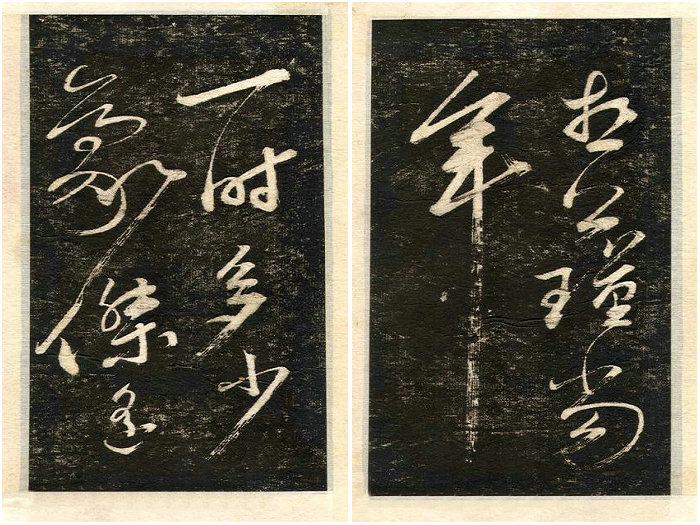 一時多少
豪傑遥
想公瑾當
年